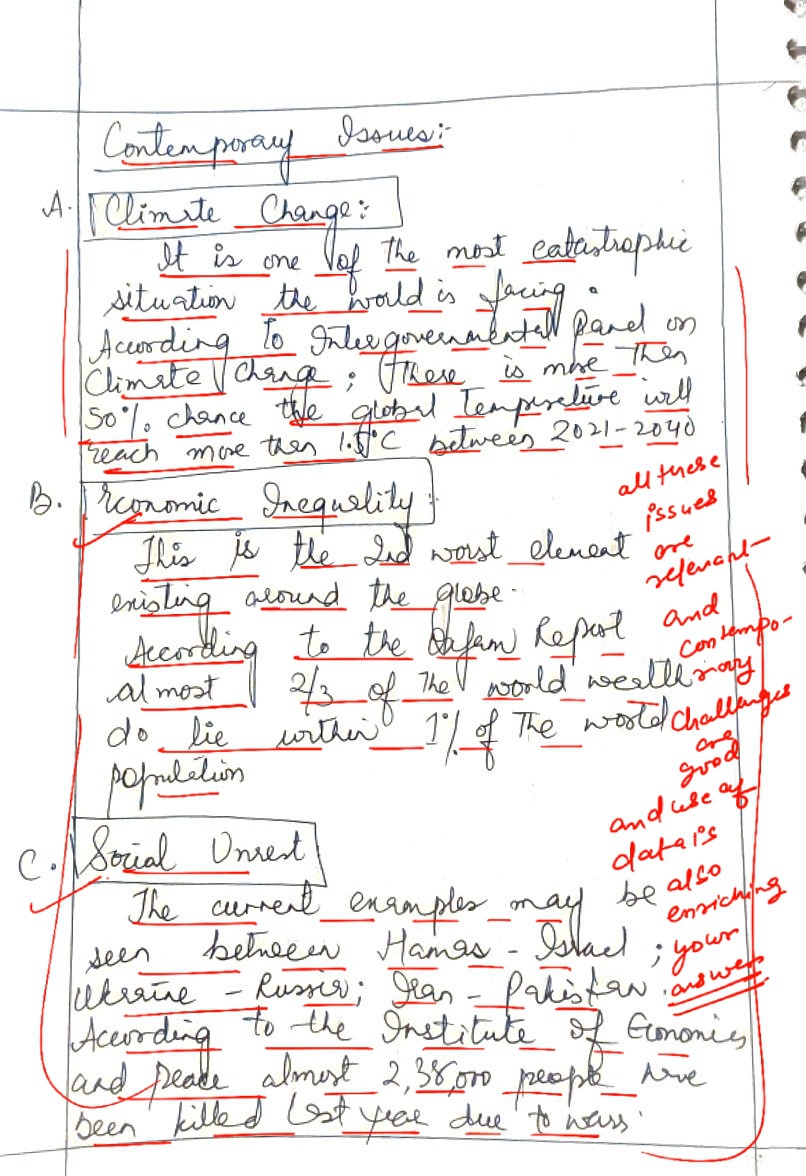 Contemporary Issues:-
A. Climate Change:
It is one of the most catastrophic
situation the world is facing.
According to Intergovernmental Panel on
Climate Change; There is more then
50% chance the global Temperature will
reach more then 1.5°C between 2021-2040
B. Economic Inequality:
This is the 2nd worst element
existing around the globe.
According to the Oxfam Report
almost 2/3 of the world wealth
do lie within 1% of The world
population
all these
issues
are
relevant
and
contempo-
rary
challenges
are
good
and use of
data is
also
enriching
your
answer
C. Social Unrest
The current examples may be
seen between Hamas - Israel;
Ukraine - Russia; Iran - Pakistan.
According to the Institute of Economics
and Peace almost 2,38,000 people have
been killed last year due to wars.